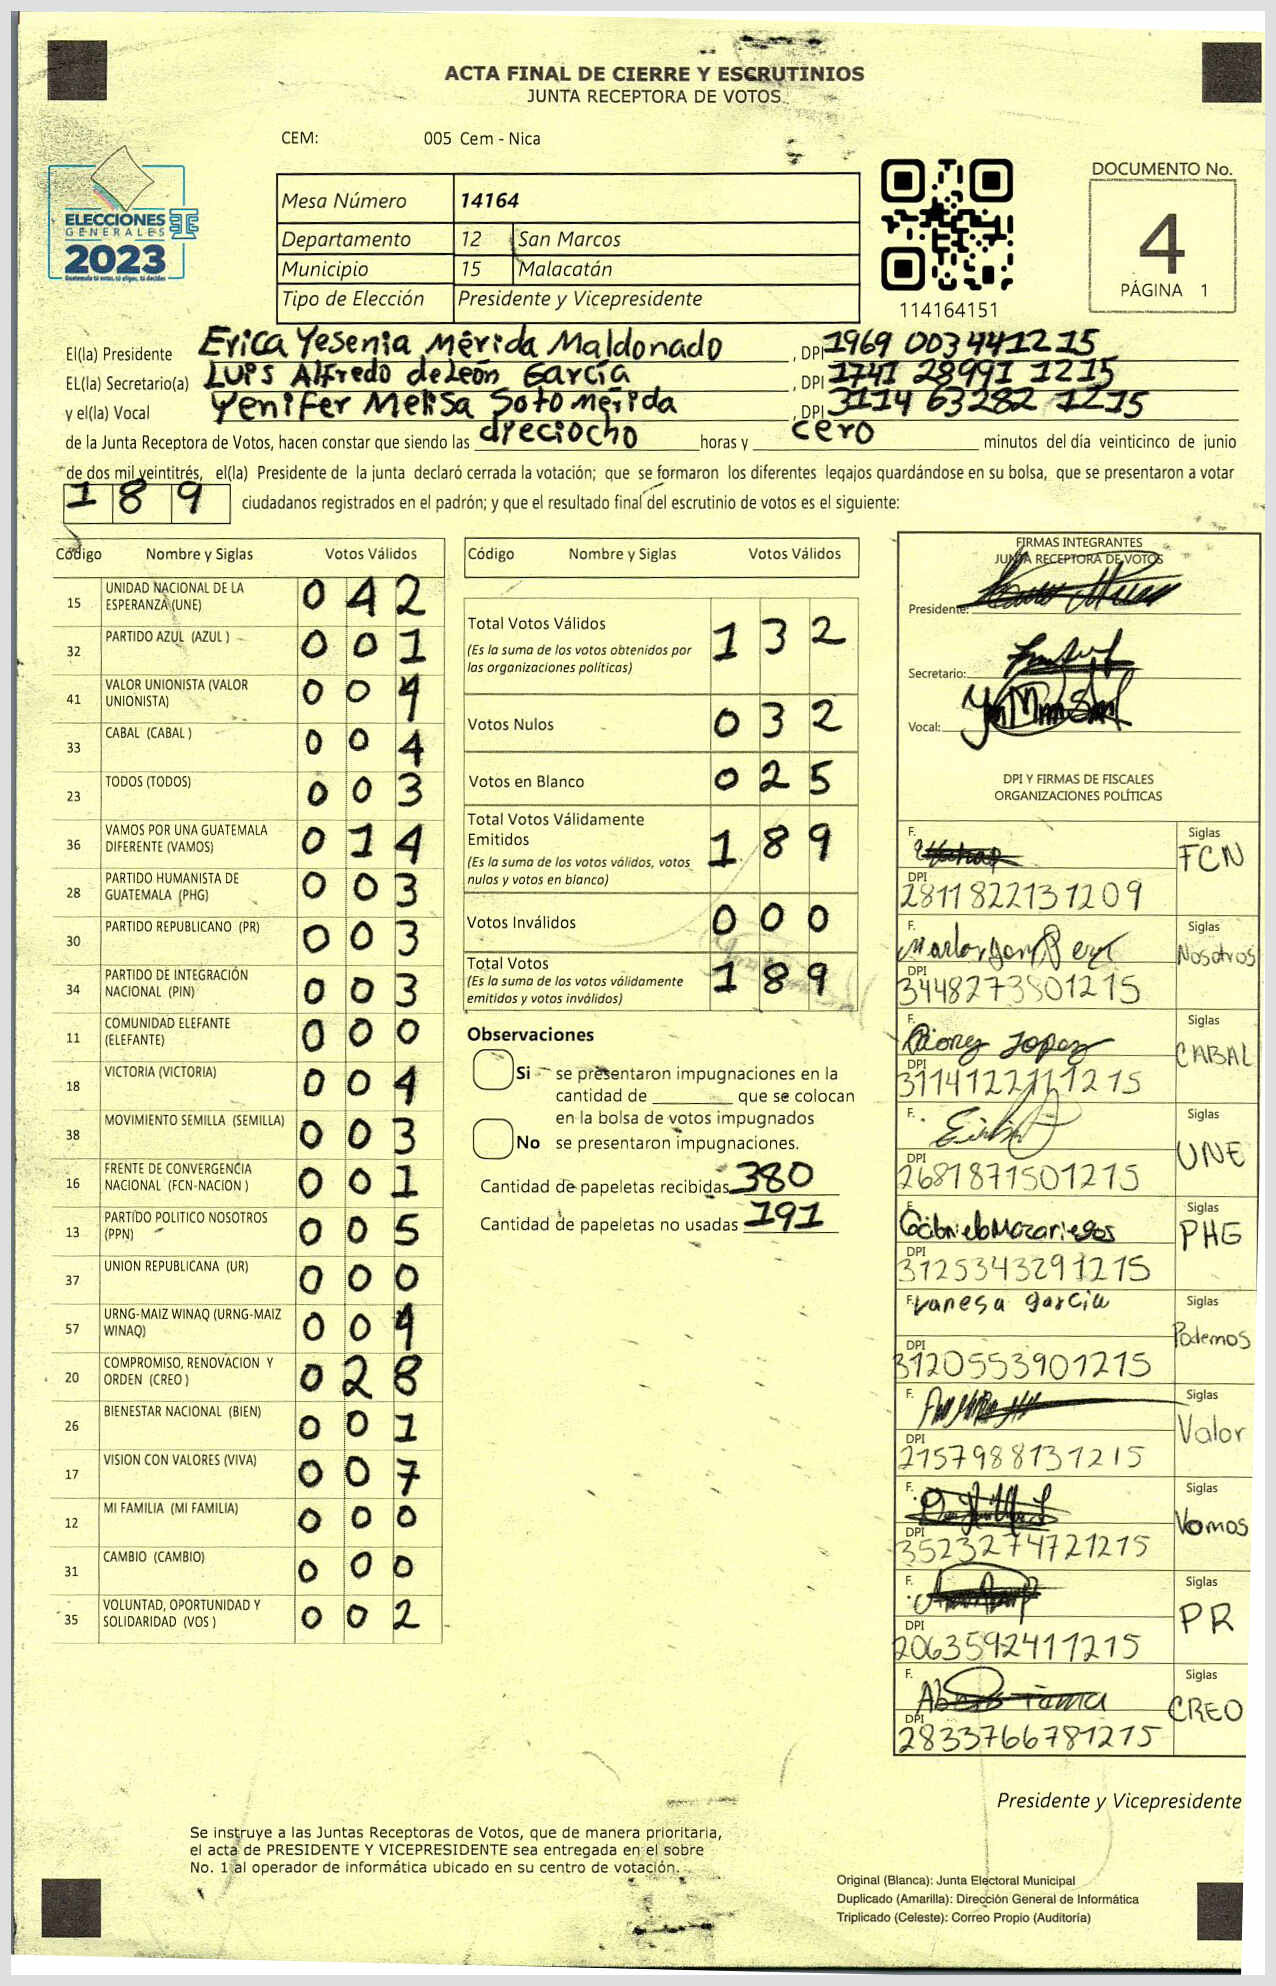 ACTA FINAL DE CIERRE Y ESCRUTINIOS
JUNTA RECEPTORA DE VOTOS
CEM: 005 Cem - Nica
ELECCIONES
GENERALES
2023
Guatemala tú votas, tú eliges, tú decides
Mesa Número 14164
Departamento 12 San Marcos
Municipio 15 Malacatán
Tipo de Elección Presidente y Vicepresidente
114164151
DOCUMENTO No.
4
PÁGINA 1
El(la) Presidente Erica Yesenia Mérida Maldonado , DPI 1969 00344 1215
EL(la) Secretario(a) Luis Alfredo de León García , DPI 1741 28991 1215
y el(la) Vocal Yenifer Melisa Soto mérida , DPI 3114 63282 1215
de la Junta Receptora de Votos, hacen constar que siendo las dieciocho horas y cero minutos del día veinticinco de junio
de dos mil veintitrés, el(la) Presidente de la junta declaró cerrada la votación; que se formaron los diferentes legajos quardándose en su bolsa, que se presentaron a votar
189 ciudadanos registrados en el padrón; y que el resultado final del escrutinio de votos es el siguiente:
Código Nombre y Siglas Votos Válidos
15 UNIDAD NACIONAL DE LA ESPERANZA (UNE) 042
32 PARTIDO AZUL (AZUL ) 001
41 VALOR UNIONISTA (VALOR UNIONISTA) 004
33 CABAL (CABAL ) 004
23 TODOS (TODOS) 003
36 VAMOS POR UNA GUATEMALA DIFERENTE (VAMOS) 014
28 PARTIDO HUMANISTA DE GUATEMALA (PHG) 003
30 PARTIDO REPUBLICANO (PR) 003
34 PARTIDO DE INTEGRACIÓN NACIONAL (PIN) 003
11 COMUNIDAD ELEFANTE (ELEFANTE) 000
18 VICTORIA (VICTORIA) 004
38 MOVIMIENTO SEMILLA (SEMILLA) 003
16 FRENTE DE CONVERGENCIA NACIONAL (FCN-NACION ) 001
13 PARTIDO POLITICO NOSOTROS (PPN) 005
37 UNION REPUBLICANA (UR) 000
57 URNG-MAIZ WINAQ (URNG-MAIZ WINAQ) 004
20 COMPROMISO, RENOVACION Y ORDEN (CREO ) 028
26 BIENESTAR NACIONAL (BIEN) 001
17 VISION CON VALORES (VIVA) 007
12 MI FAMILIA (MI FAMILIA) 000
31 CAMBIO (CAMBIO) 000
35 VOLUNTAD, OPORTUNIDAD Y SOLIDARIDAD (VOS ) 002
Código Nombre y Siglas Votos Válidos
Total Votos Válidos 132
(Es la suma de los votos obtenidos por
las organizaciones políticas)
Votos Nulos 032
Votos en Blanco 025
Total Votos Válidamente
Emitidos 189
(Es la suma de los votos válidos, votos
nulos y votos en blanco)
Votos Inválidos 000
Total Votos 189
(Es la suma de los votos válidamente
emitidos y votos inválidos)
Observaciones
Si se presentaron impugnaciones en la
cantidad de ________ que se colocan
en la bolsa de votos impugnados
No se presentaron impugnaciones.
Cantidad de papeletas recibidas 380
Cantidad de papeletas no usadas 191
FIRMAS INTEGRANTES
JUNTA RECEPTORA DE VOTOS
Presidente:
Secretario:
Vocal:
DPI Y FIRMAS DE FISCALES
ORGANIZACIONES POLÍTICAS
F. Siglas FCN
DPI 2811822131209
F. Siglas Nosotros
DPI 3448273801215
F. Diony Lopez Siglas CABAL
DPI 3114122111215
F. Siglas UNE
DPI 2681871501215
F. Gabriel Mazariegos Siglas PHG
DPI 3125343291215
F. Vanesa garcia Siglas Podemos
DPI 3120553901215
F. Siglas Valor
DPI 2157988131215
F. Siglas Vamos
DPI 3523274721215
F. Siglas PR
DPI 2063592411215
F. Siglas CREO
DPI 2833766781215
Presidente y Vicepresidente
Se instruye a las Juntas Receptoras de Votos, que de manera prioritaria,
el acta de PRESIDENTE Y VICEPRESIDENTE sea entregada en el sobre
No. 1 al operador de informática ubicado en su centro de votación.
Original (Blanca): Junta Electoral Municipal
Duplicado (Amarilla): Dirección General de Informática
Triplicado (Celeste): Correo Propio (Auditoría)